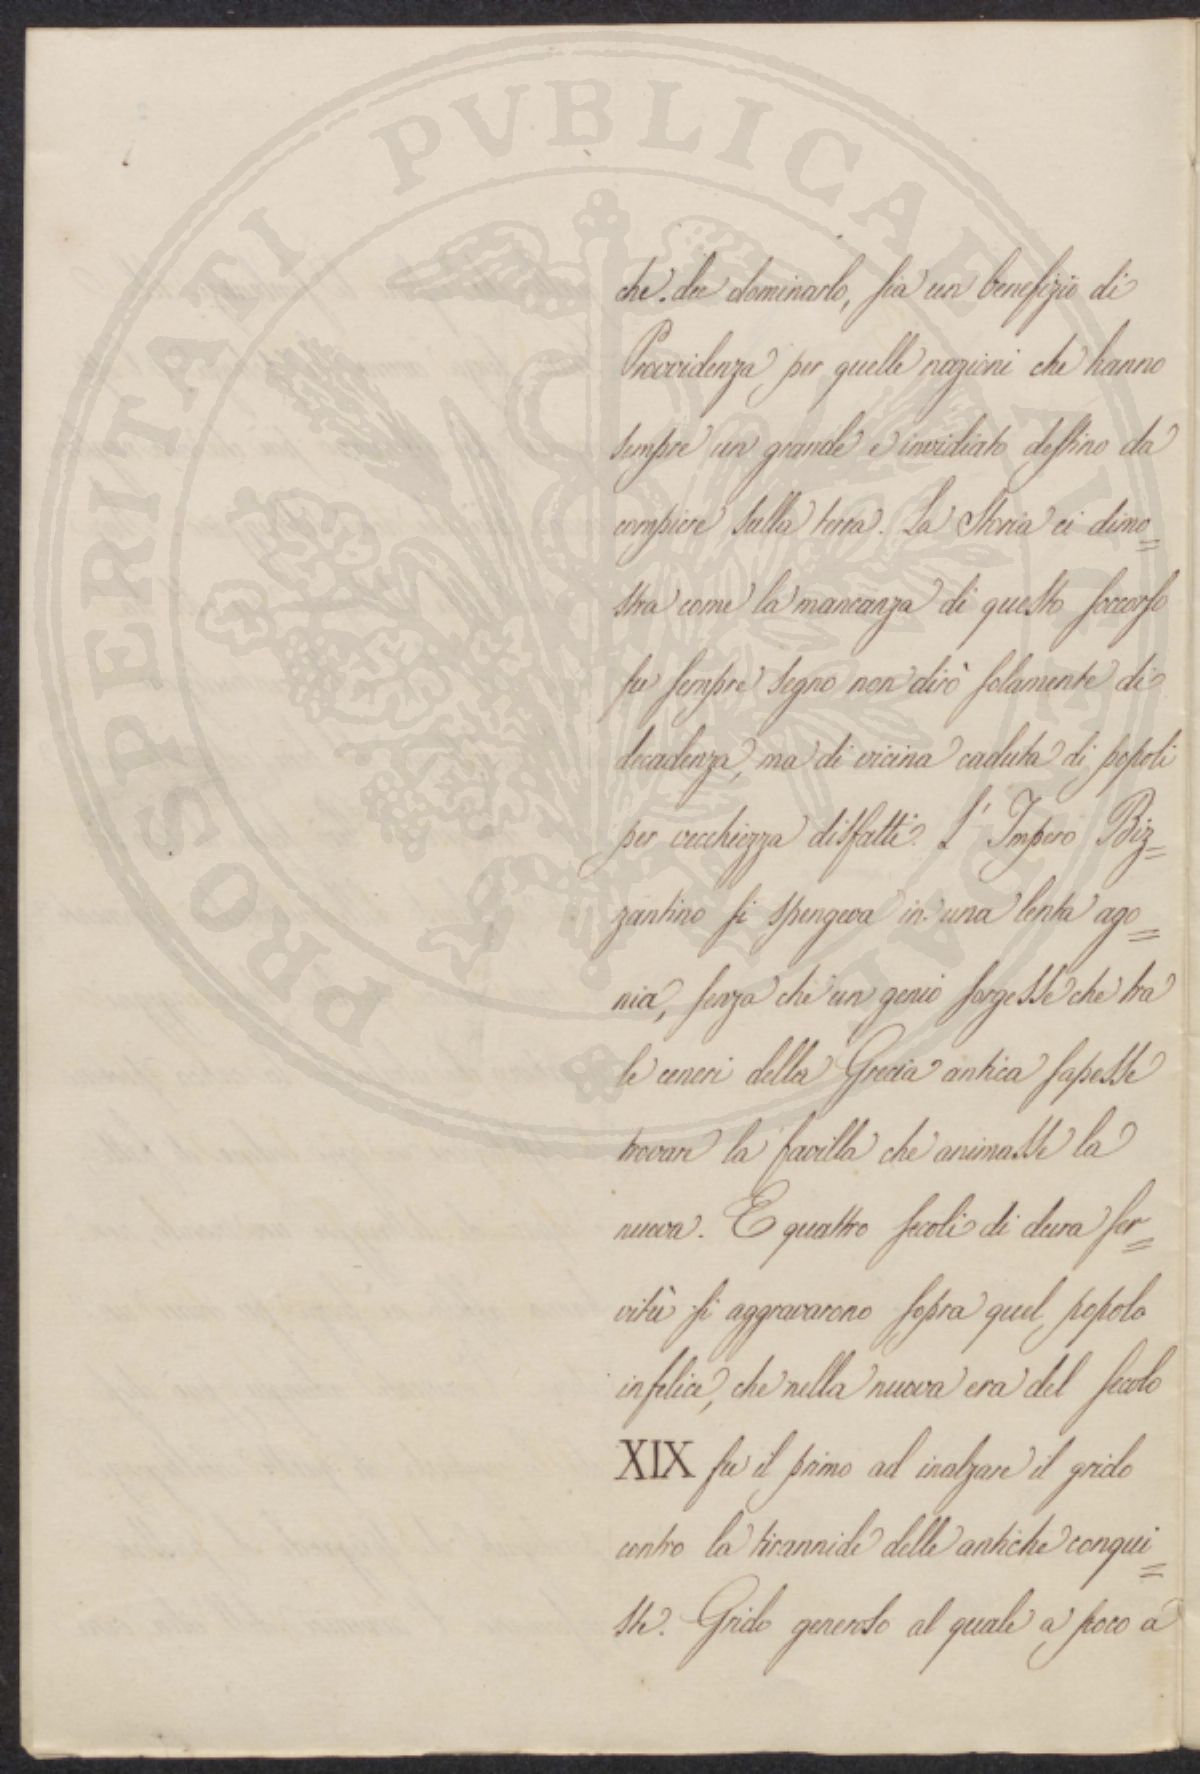 PROSPERITATI PVBLICAE AVGENDAE
che dee dominarlo, sia un benefizio di
Provvidenza per quelle nazioni che hanno
sempre un grande e invidiato destino da
compiere sulla terra. La Storia ci dimo=
stra come la mancanza di questo soccorso
fu sempre segno non dirò solamente di
decadenza, ma di vicina caduta di popoli
per vecchiezza disfatti. L' Impero Biz=
zantino si spengeva in una lenta ago=
nia, senza che un genio sorgesse che tra
le ceneri della Grecia antica sapesse
trovare la favilla che animasse la
nuova. E quattro secoli di dura ser=
vitù si aggravarono sopra quel popolo
infelice, che nella nuova era del secolo
XIX fu il primo ad inalzare il grido
contro la tirannide delle antiche conqui=
ste. Grido generoso al quale a poco a